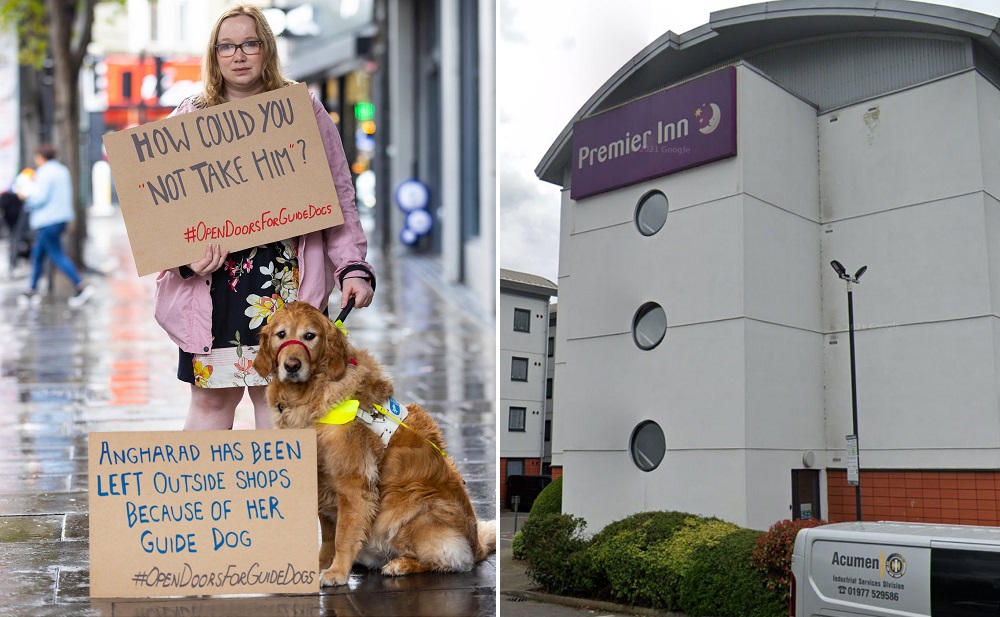 HOW COULD YOU
"NOT TAKE HIM"?
#OPENDOORSFORGUIDEDOGS
ANGHARAD HAS BEEN
LEFT OUTSIDE SHOPS
BECAUSE OF HER
GUIDE DOG
#OPENDOORSFORGUIDEDOGS
Premier Inn
2021 Google
Acumen
Industrial Services Division
☎ 01977 529586